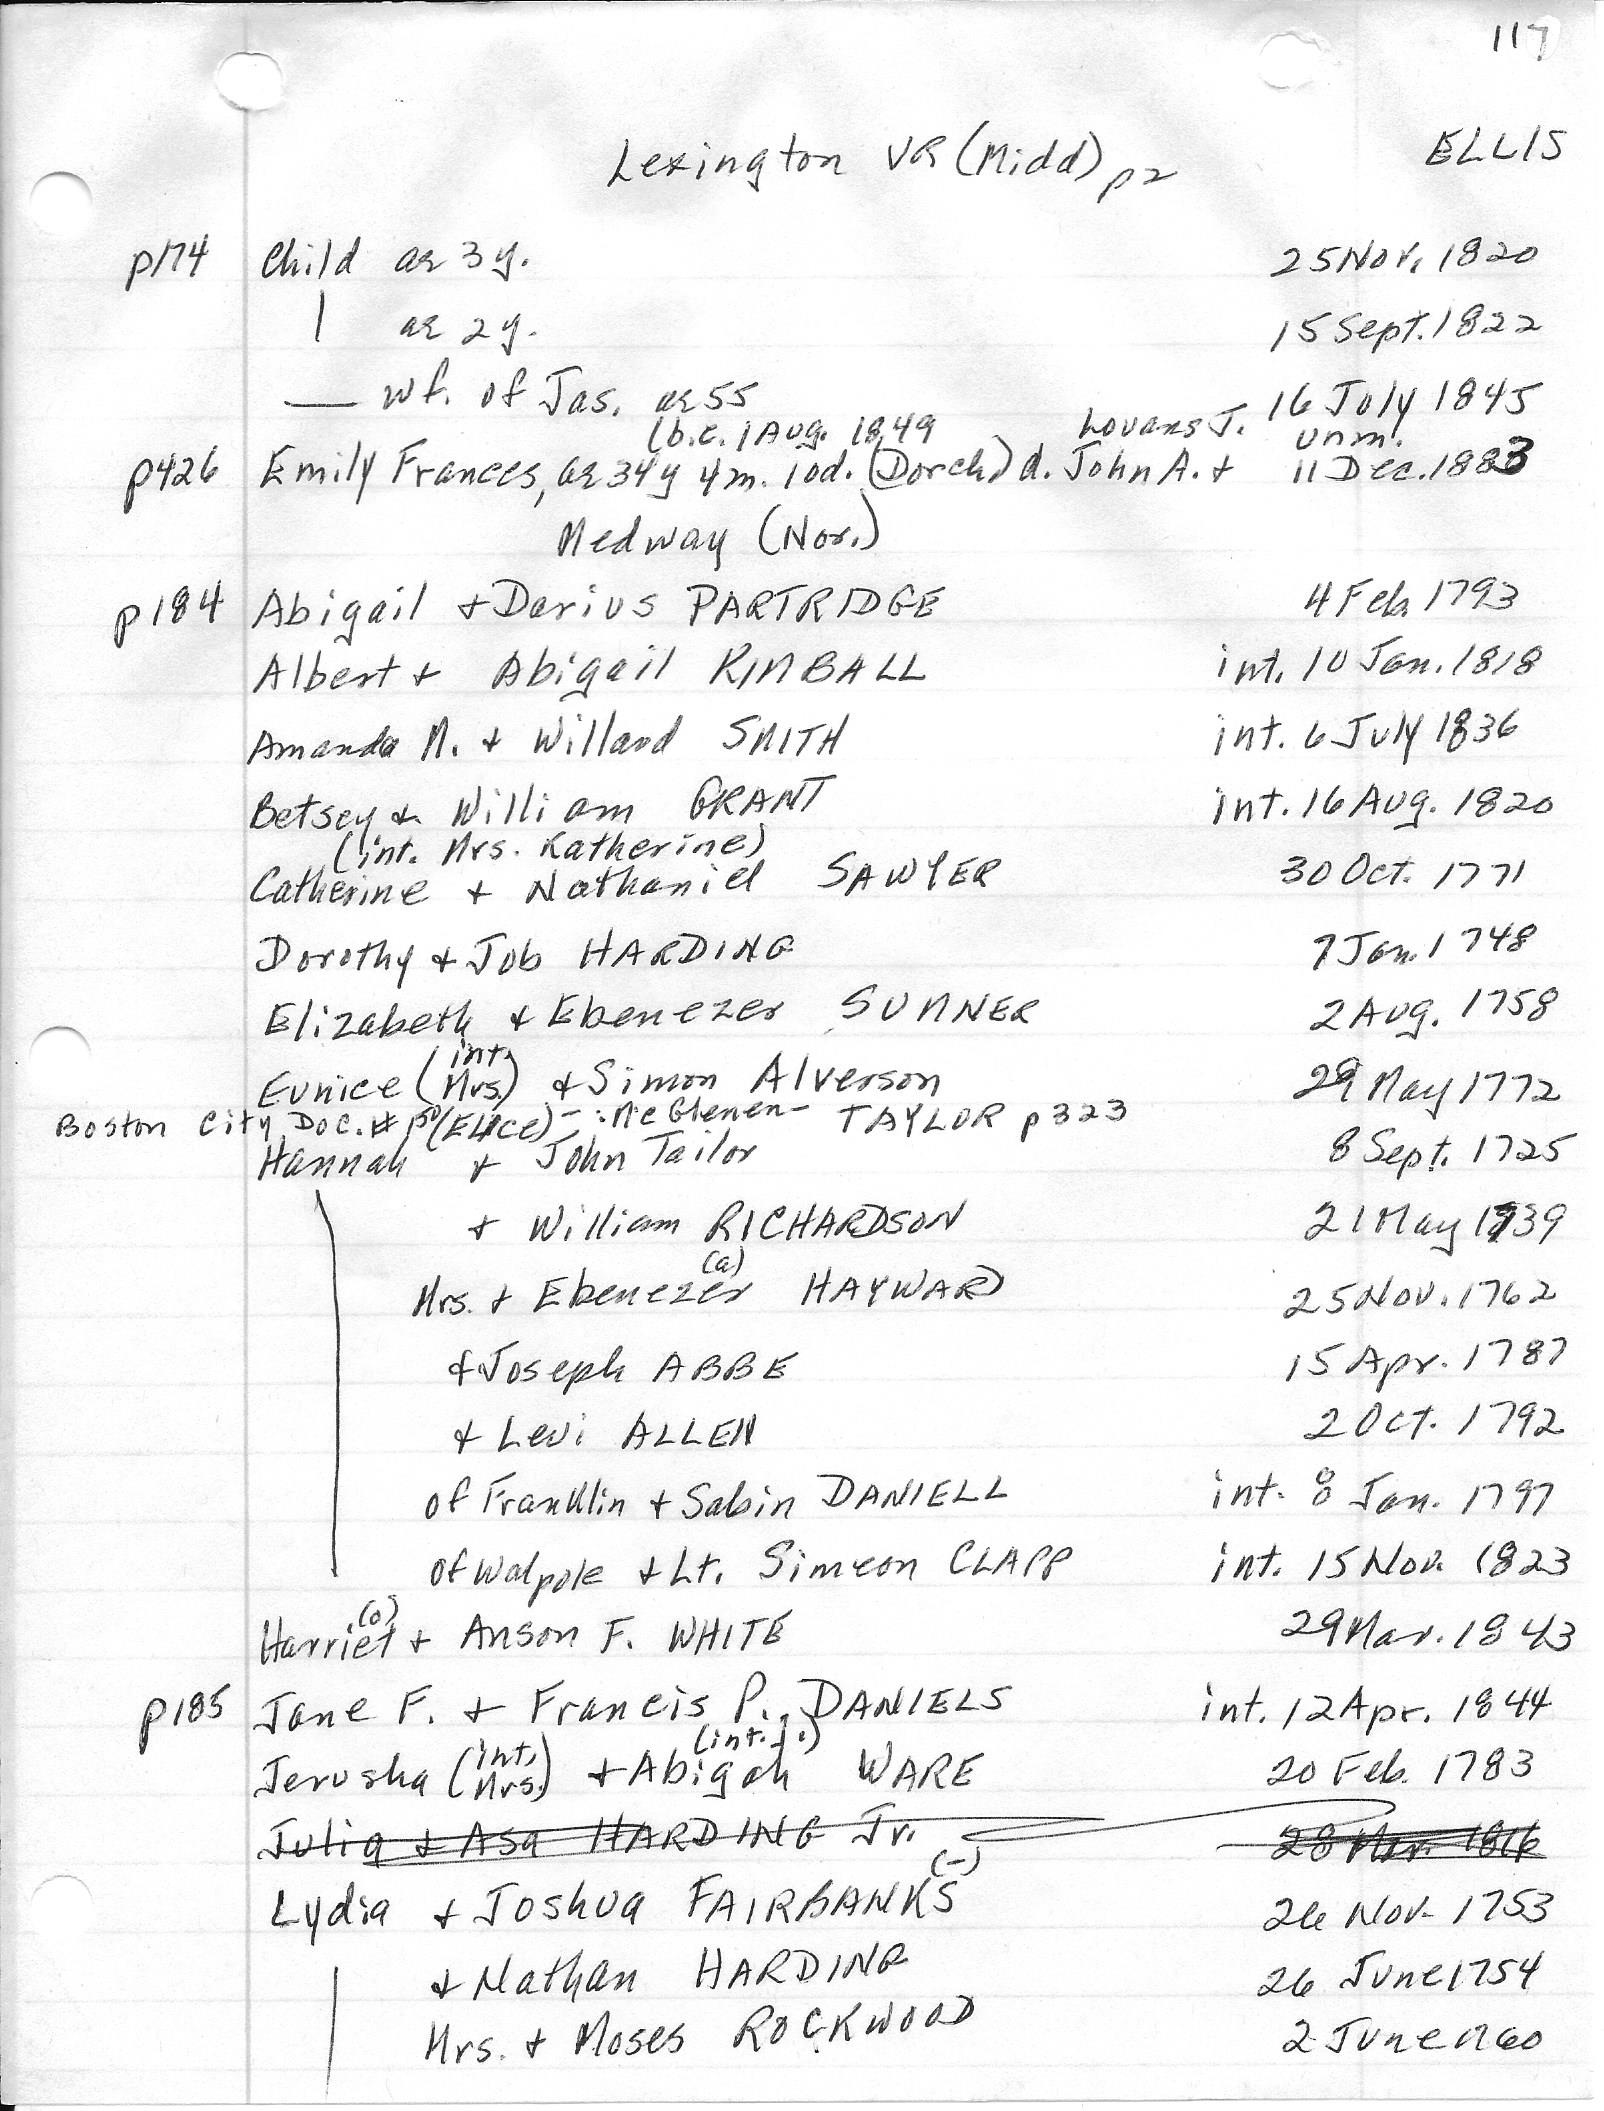 117
ELLIS
Lexington VR (Midd) p2
p174 Child ae 3y. 25 Nov. 1820
ae 2y. 15 Sept. 1822
— wf. of Jas. ae 55 16 July 1845
(b.c. 1 Aug. 1849 Lovans J. unm.
p426 Emily Frances, ae 34y 4m. 10d. (Dorch) d. John A. + 11 Dec. 1883
Medway (Nor.)
p184 Abigail + Darius PARTRIDGE 4 Feb. 1793
Albert + Abigail KIMBALL int. 10 Jan. 1818
Amanda M. + Willard SMITH int. 6 July 1836
Betsey + William GRANT int. 16 Aug. 1820
(int. Mrs. Katherine)
Catherine + Nathaniel SAWYER 30 Oct. 1771
Dorothy + Job HARDING 7 Jan. 1748
Elizabeth + Ebenezer SUMNER 2 Aug. 1758
Eunice (int. Mrs.) + Simon Alverson 29 May 1772
Boston City Doc. # 150 (ELICE) - : McGlenen - TAYLOR p323
Hannah + John Tailor 8 Sept. 1725
+ William RICHARDSON 21 May 1739
(a)
Mrs. + Ebenezer HAYWARD 25 Nov. 1762
+ Joseph ABBE 15 Apr. 1787
+ Levi ALLEN 2 Oct. 1792
of Franklin + Sabin DANIELL int. 8 Jan. 1797
of Walpole + Lt. Simeon CLAPP int. 15 Nov. 1823
(o)
Harriet + Anson F. WHITE 29 Mar. 1843
p185 Jane F. + Francis P. DANIELS int. 12 Apr. 1844
(int. j.)
Jerusha (int. Mrs.) + Abigah WARE 20 Feb. 1783
Julia + Asa HARDING Jr. 28 Mar. 1816
(-)
Lydia + Joshua FAIRBANKS 26 Nov. 1753
+ Nathan HARDING 26 June 1754
Mrs. + Moses ROCKWOOD 2 June 1760